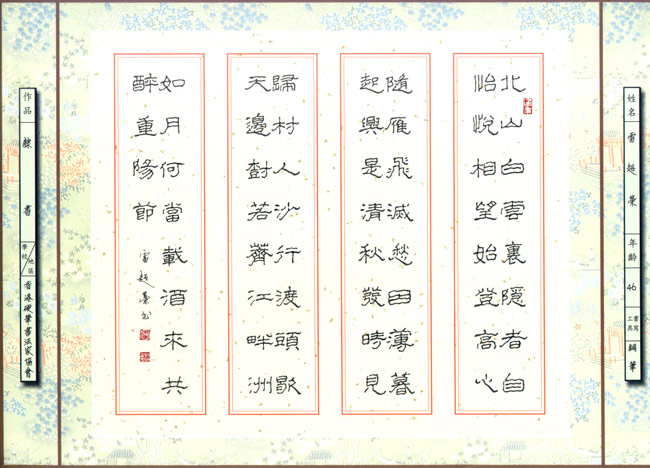 姓名 雷超榮 年齡 46 書寫工具 鋼筆
北山白雲裏隱者自
怡悅相望始登高心
隨雁飛滅愁因薄暮
起興是清秋發時見
歸村人沙行渡頭歇
天邊樹若薺江畔洲
如月何當載酒來共
醉重陽節
雷超榮書
作品 隸書 學校/地區 香港硬筆書法家協會